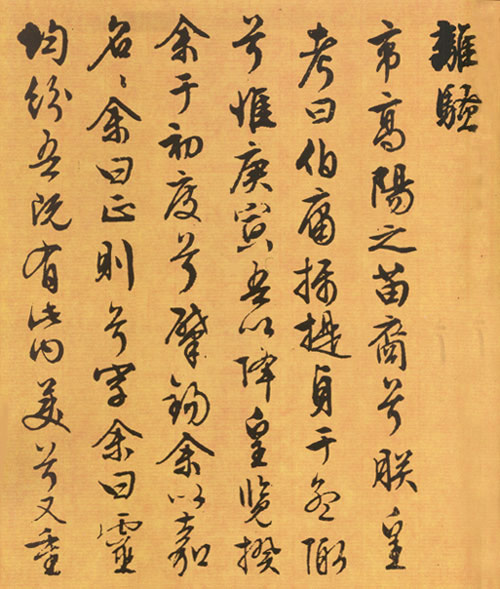 離騷
帝高陽之苗裔兮朕皇
考曰伯庸攝提貞于孟陬
兮惟庚寅吾以降皇覽揆
余于初度兮肇錫余以嘉
名々余曰正則兮字余曰靈
均紛吾既有此內美兮又重